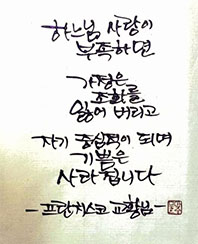 하느님 사랑이
부족하면
가정은
조화를
잃어 버리고
자기 중심적이 되며
기쁨은
사라집니다
- 프란치스코 교황님 -